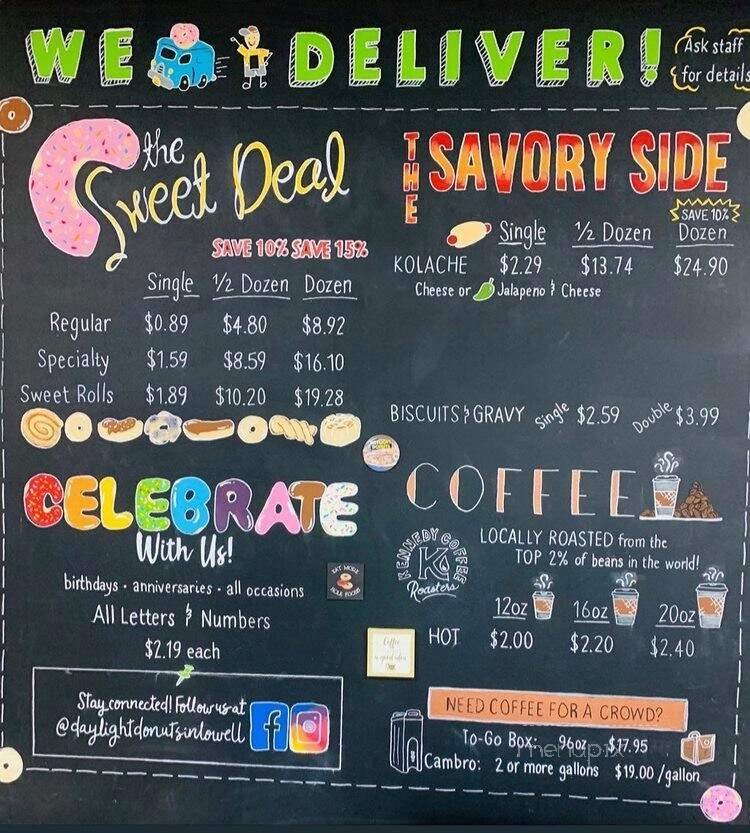 WE DELIVER!
Ask staff
for details
the
Sweet Deal
SAVE 10% SAVE 15%
Single ½ Dozen Dozen
Regular $0.89 $4.80 $8.92
Specialty $1.59 $8.59 $16.10
Sweet Rolls $1.89 $10.20 $19.28
THE SAVORY SIDE
SAVE 10%
Single ½ Dozen Dozen
KOLACHE $2.29 $13.74 $24.90
Cheese or Jalapeno & Cheese
BISCUITS & GRAVY Single $2.59 Double $3.99
CELEBRATE
With Us!
birthdays · anniversaries · all occasions
All Letters & Numbers
$2.19 each
Stay connected! Follow us at
@daylightdonutsinlowell
EAT MORE
HOLE FOODS
COFFEE
LOCALLY ROASTED from the
TOP 2% of beans in the world!
KENNEDY COFFEE
K
Roasters
12oz 16oz 20oz
HOT $2.00 $2.20 $2.40
Coffee
NEED COFFEE FOR A CROWD?
To-Go Box: 96oz $17.95
Cambro: 2 or more gallons $19.00 /gallon
menupix